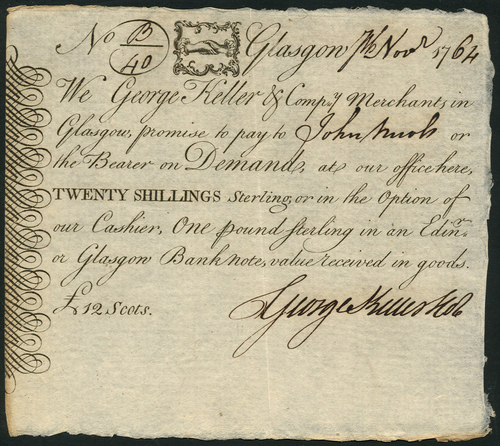 No B/40 Glasgow 7th Novr. 1764
We George Keller & Compy. Merchants in
Glasgow, promise to pay to John or
the Bearer on Demand, at our office here,
TWENTY SHILLINGS Sterling, or in the Option of
our Cashier, One pound sterling in an Edinr.
or Glasgow Bank note, value received in goods.
£12 Scots.
George Keller & Co